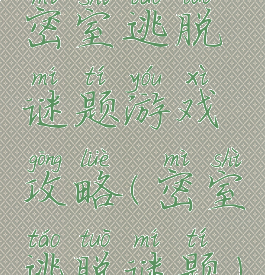 mì shì táo tuō
密室逃脱
mí tí yóu xì
谜题游戏
gōng lüè mì shì
攻略(密室
táo tuō mí tí
逃脱谜题)